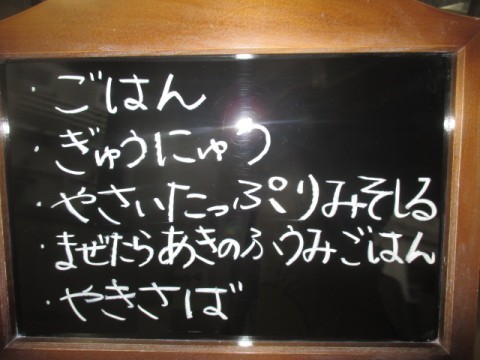 ・ごはん
・ぎゅうにゅう
・やさいたっぷりみそしる
・まぜたらあきのふうみごはん
・やきさば